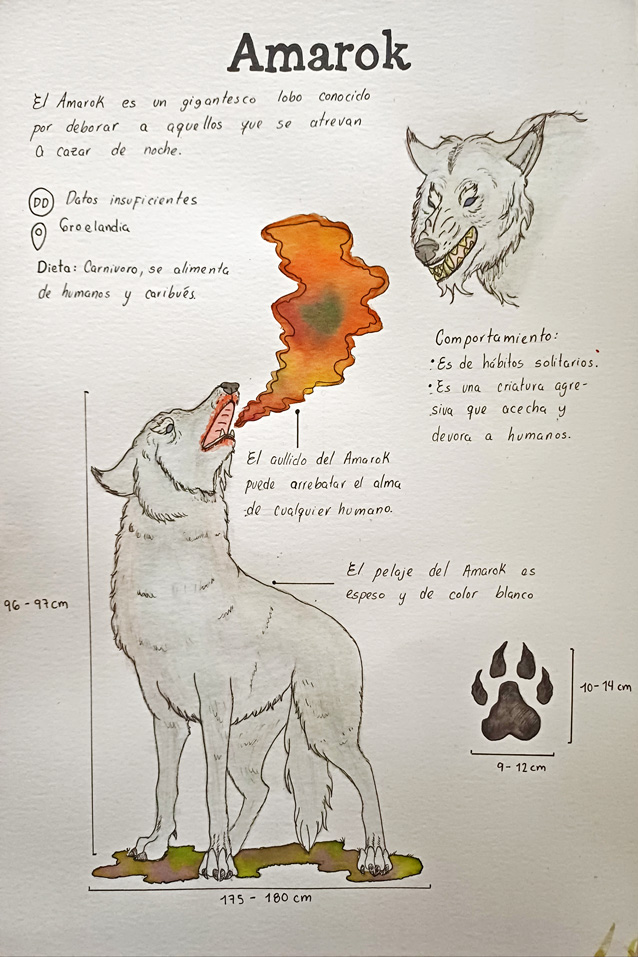 Amarok
El Amarok es un gigantesco lobo conocido
por deborar a aquellos que se atrevan
a cazar de noche.
DD Datos insuficientes
Groelandia
Dieta: Carnivoro, se alimenta
de humanos y caribués.
Comportamiento:
• Es de hábitos solitarios.
• Es una criatura agre-
siva que acecha y
devora a humanos.
El aullido del Amarok
puede arrebatar el alma
de cualquier humano.
El pelaje del Amarok es
espeso y de color blanco
96-97cm
10-14 cm
9-12cm
175 - 180 cm